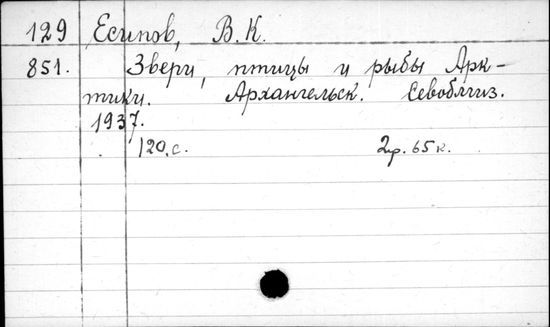 129 Есипов, В.К.
851. Звери, птицы и рыбы Арк-
тики. Архангельск. Севоблгиз.
1937.
120.с. 2р. 65к.